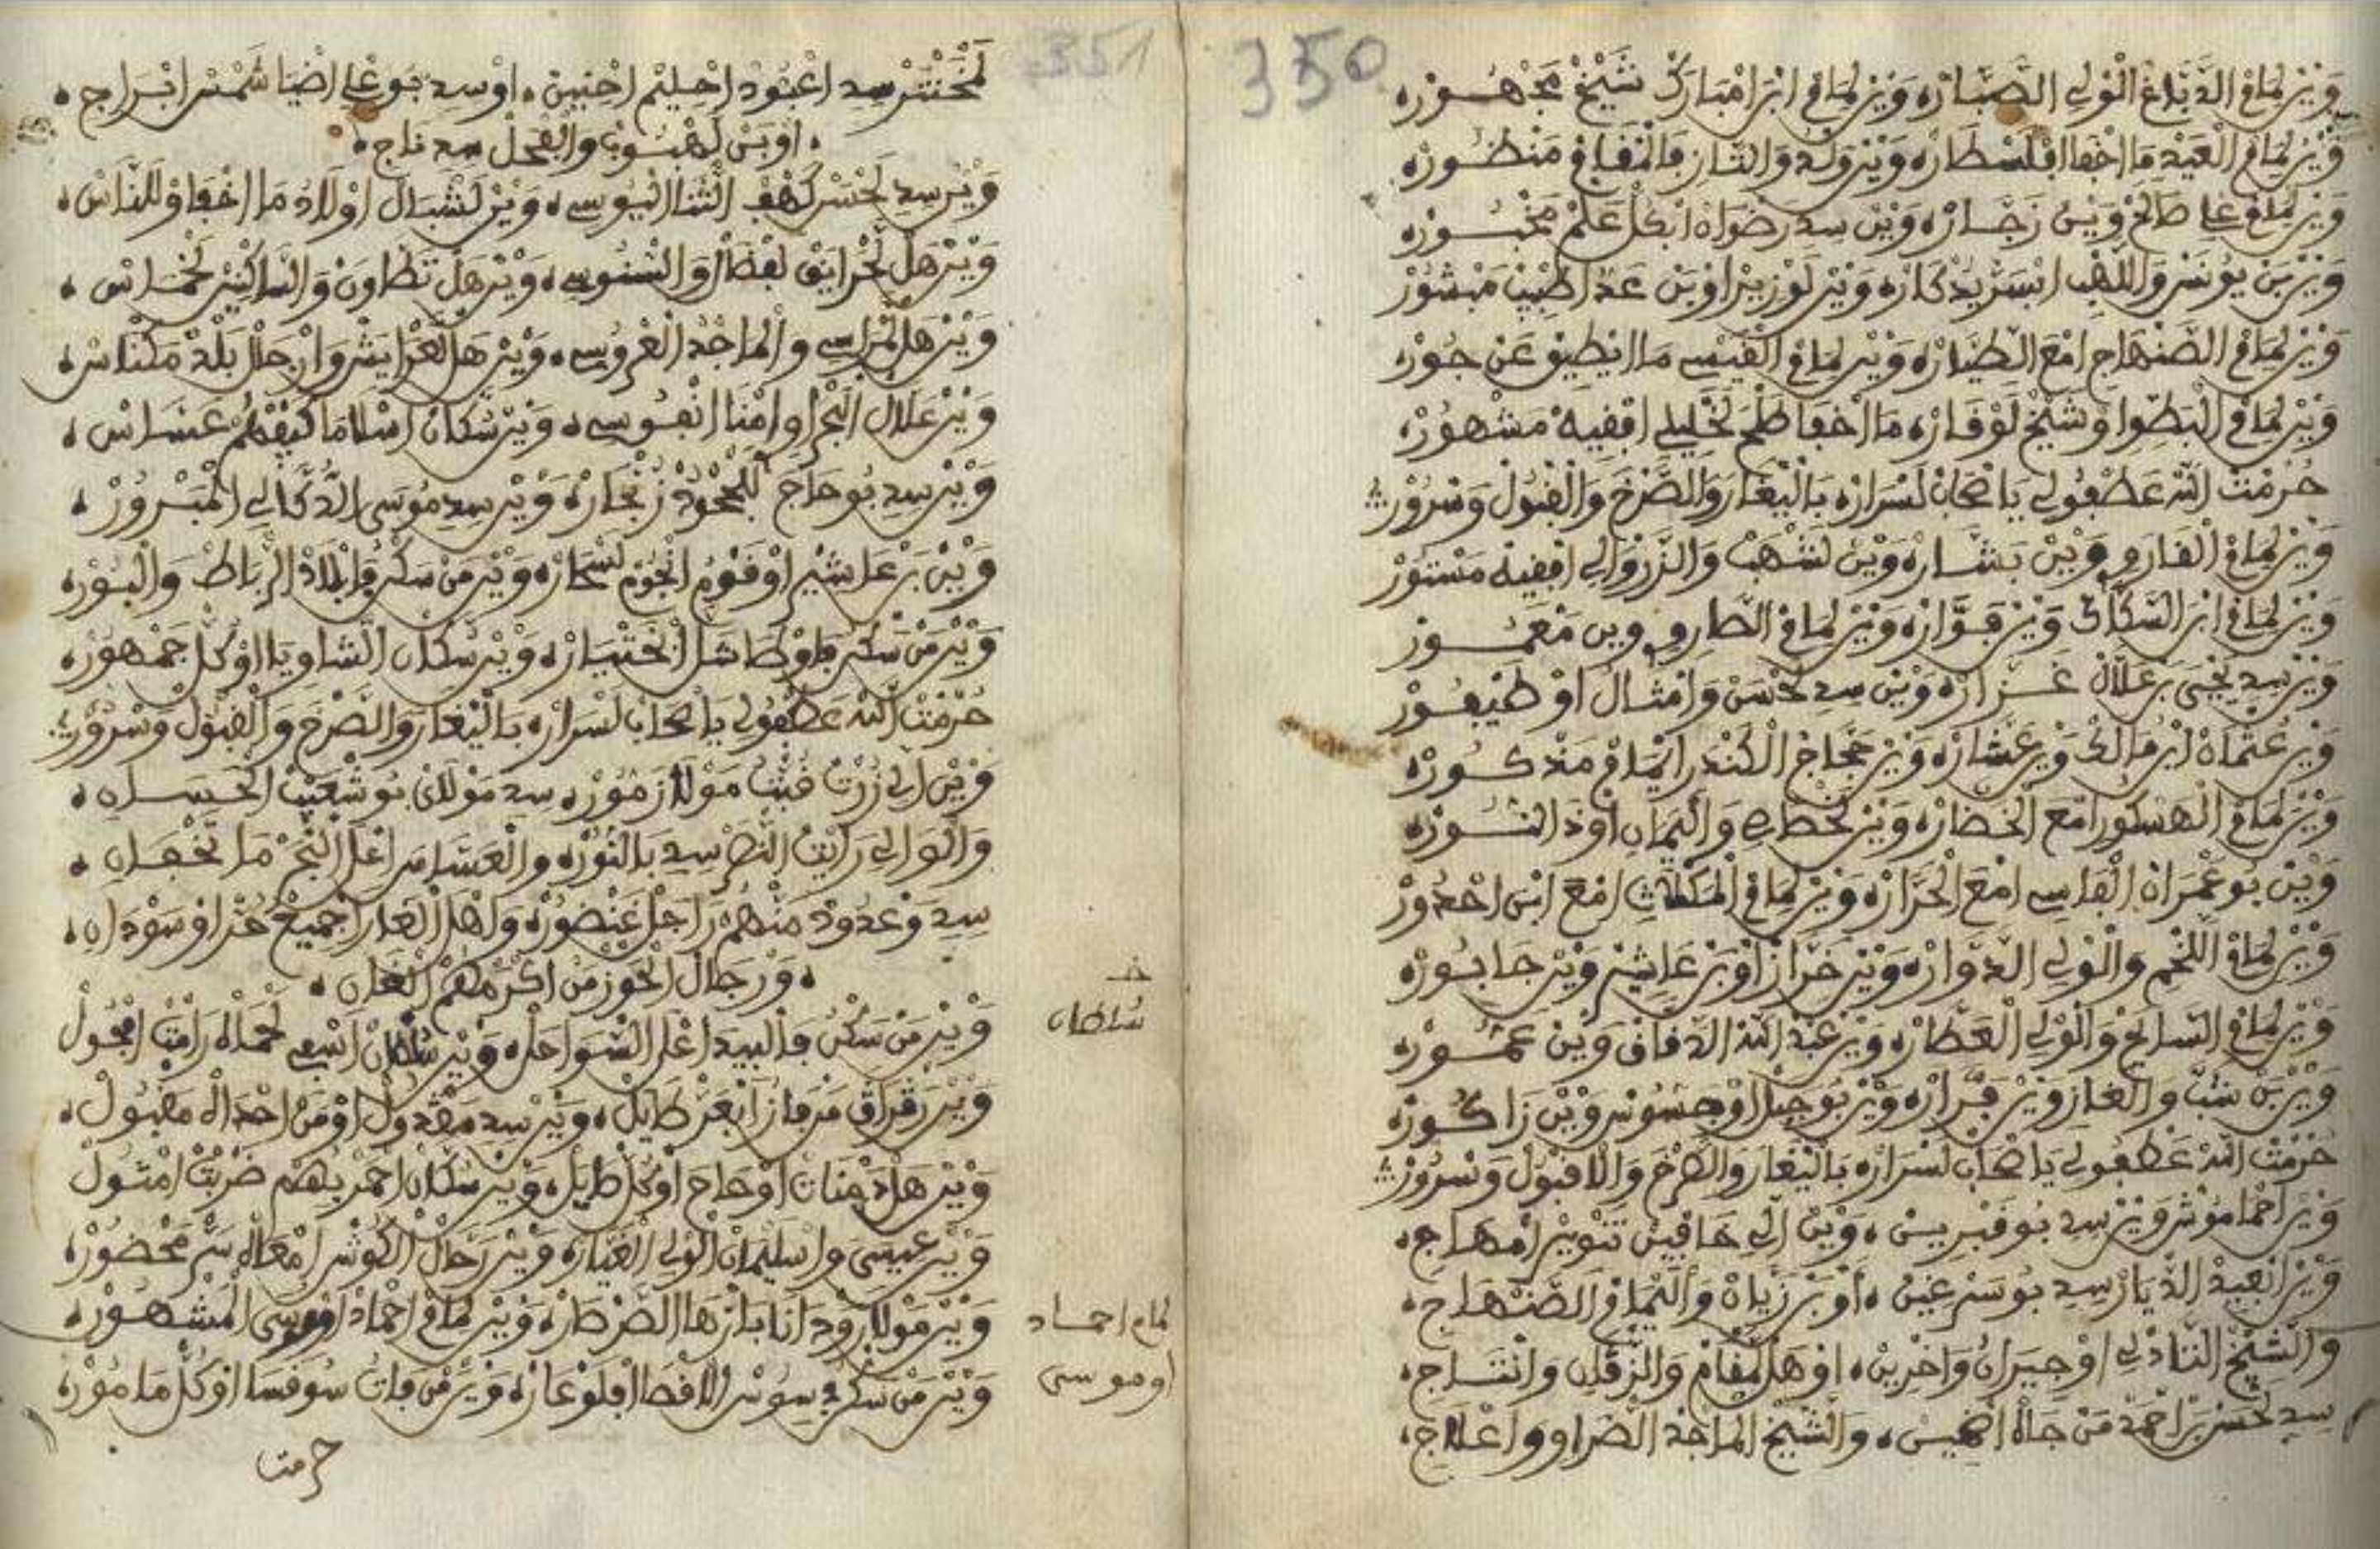 350
وَيْنْ لِمَامْ الدَّبَّاغْ الْوْلِي الصَّبَّارْ، وَيْنْ لِمَامْ ابْنْ امْبَارَكْ شَيْخْ مَجْهُورْ،
وَيْنْ لِمَامْ الْعَبْدْ مَا اخْفَا افْلَسْطَارْ، وَيْنْ وَلْدْ وَالتَّازِ فَالْمْفَامْ مَنْظُورْ،
وَيْنْ لِمَامْ عَلِي صَالَحْ وَيْنْ رَحَّارْ، وَيْنْ سِيدِ رَضْوَانْ ابْكُلْ عَلْمْ مَخْبُورْ،
وَيْنْ بَنْ يُونَسْ وَاللَّهْبِ ابْسَرْ يَدْكَارْ، وَيْنْ لَوْزِيرْ اوْبَنْ عَدَّا طَبِيبْ مَبْشُورْ
وَيْنْ لِمَامْ الصَّنْهَاجِ امْعَ الطَّيَّارْ، وَيْنْ لِمَامْ الْقَيْسِي مَا ايْطِيقْ عَنْ جُورْ،
وَيْنْ لِمَامْ الْبَطِّوا وْشَيْخْ لَوْقَارْ، مَا اخْفَا طَلْحَ لَخْلِيلِي افْقِيهْ مَشْهُورْ،
حُرْمْتْ اللَّهْ عَطْفُو لِي يَا صْحَابْ لَسْرَارْ، بَالنّْغَارْ وَالصَّرْخَ وَالْقْبُولْ وَسْرُورْ
وَيْنْ لِمَامْ الْقَارِي وَيْنْ بَشَّارْ، وَيْنْ لَشْهَبْ وَالزَّرْوَالِي افْقِيهْ مَسْتُورْ
وَيْنْ لِمَامْ ابْنْ السَّكَّاكْ وَيْنْ فَوَّارْ، وَيْنْ لِمَامْ الطَّارِي وين مَعْمُورْ
وَيْنْ سِيدِ يَحْيَى بَنْ عَلَّالْ غَزَّارْ، وَيْنْ سِيدِ لَحْسَنْ وَامْثَالْ اوْ طَيْفُورْ
وَيْنْ عُثْمَانْ ابْنْ مَالَكْ وَيْنْ عَشَّارْ، وَيْنْ حَجَّاجْ الْكَنْدْرِ ايْمَامْ مَذْكُورْ،
وَيْنْ لِمَامْ الْهَسْكُورِ امْعَ الْخَضَّارْ، وَيْنْ لَخْطَابِي وَالْيَمَانِ اوْدَ النُّورْ،
وَيْنْ بُوعَمْرَانْ الْفَاسِي امْعَ الْحَرَّارْ، وَيْنْ لِمَامْ الْمَكْلَاتِي امْعَ ابْنْ احْدُورْ
وَيْنْ لِمَامْ اللَّخْمِي وَالْوْلِي الدَّوَّارْ، وَيْنْ خَرَّازْ اوْبَنْ عَاشِرْ وَيْنْ جَابُورْ،
وَيْنْ لِمَامْ السَّايَحْ وَالْوْلِي الْعَطَّارْ، وَيْنْ عَبْدْ اللَّهْ الدَّقَاقْ وَيْنْ عَمُّورْ،
وَيْنْ بَنْ شَبّْ وَالْغَازِ وَيْنْ فَرَّارْ، وَيْنْ بُوجْبَلْ اوْحَسُّونْ وَيْنْ زَاكُورْ،
حُرْمْتْ اللَّهْ عَطْفُو لِي يَا صْحَابْ لَسْرَارْ، بَالنّْغَارْ وَالصَّرْخَ وَالْاقْبُولْ وَسْرُورْ
وَيْنْ احْمَامُوشْ وَيْنْ سِيدِ بُوقَبْرِينْ، وَيْنْ الِّي خَافِيينْ تَنْوِيرْ امْهَاجْ،
وَيْنْ ابْعِيدْ الدْيَارْ سِيدِ بُوسَرْغِينْ، أَوْبَنْ زَيَّانْ وَالْيْمَامْ الصَّنْهَاجْ،
وَالشِّيخْ التَّادْلِي اوْجِيرَانْ وَاخْرِينْ، اوْهَلْ لَمْقَامْ وَالزَّرْقَانِ وَانْتَاجْ،
سِيدِ لَحْسَنْ بَنْ احْمَدْ مَنْ جَاهْ اضْمِينْ، وَالشِّيخْ الْمَاجَدْ الْخَضْرَاوِي وَاعْلَاجْ،
351
لَمْخَنْتَرْ سِيدِ اعْبُودْ احْلِيمْ احْنِينْ، اوْسِيدِ بُوعْلِي اضْيَا شَمْسْ ابْرَاجْ،
، اوْبَنْ لَهْبُوبْ وَالْفْحَلْ سِيدِ نَاجْ،
وَيْنْ سِيدِ لَحْسَنْ كَهْفْ الثَّنَا الْيُوسِي، وَيْنْ لَشْبَالْ اوْلَادْ مَا اخْفَاوْ لَلنَّاسْ،
وَيْنْ هَلْ لَخْرَايَقْ لَفْضَالْ وَالسّْنُوسِي، وَيْنْ هَلْ تَطَاوَنْ وَالسَّاكْنِينْ لَخْمَاسْ،
وَيْنْ هَلْ الْمْرَاسِي وَالْمَاجْدْ الْعْرُوسِي، وَيْنْ هَلْ لَعْرَايَشْ وَارْجَالْ بَلْدْ مَكْنَاسْ،
وَيْنْ عَلَّالْ الْبْحْرَاوِي امْنَا انْفُوسِي، وَيْنْ سُكَّانْ اسْلَا مَا كِيفْهُمْ عَسَّاسْ،
وَيْنْ سِيدِ بُوحَاجَ لَلْجْحُودْ زَنْجَارْ، وَيْنْ سِيدِ مُوسَى الدُّكَّالِي الْمَبْرُورْ،
وَيْنْ بَنْ عَاشِرْ اوْ قَوْمْ انْجُومْ لَسْحَارْ، وَيْنْ مَنْ سَكْنُ فَابْلَادْ الرّْبَاطْ وَالْبُورْ،
وَيْنْ مَنْ سَكْنُ فَاوْطَا شَلَّا لَخْتِيَارْ، وَيْنْ سُكَّانْ الشَّاوِيَا اوْكُلْ جَمْهُورْ،
حُرْمْتْ اللَّهْ عَطْفُو لِي يَا صْحَابْ لَسْرَارْ، بَالنّْغَارْ وَالصَّرْخَ وَالْقْبُولْ وَسْرُورْ
وَيْنْ الِّي زُرْتْ قُبّْتْ مَوْلَ ازَمُّورْ، سِيدِ مَوْلَايْ بُوشْعَيْبْ الْحَسَانِ،
وَالْوَالِي رَايَتْ النَّصْرْ سِيدِ بَالنُّورْ، وَالْعَسَّاسْ اعْلَى الْبْحْرْ مَا يَخْفَانِ،
سِيدِ وَعْدُودْ مَنْهُمْ رَاجَلْ غَنْضُورْ، وَاهْلْ الْغَارْ اجْمِيعْ حُرّْ اوْ سَوْدَانِ،
، وَرْجَالْ الْحَوْزْ مَنْ اكْرَمْهُمْ الْغَانِ،
وَيْنْ مَنْ سَكْنُ فَالْبِيدَ اعْلَى السّْوَاحَلْ، وَيْنْ سُلْطَانْ اسْفِي لَحْمَاهْ رَامَتْ افْحُولْ
خـ سُلطان
وَيْنْ رَقْرَاقْ مَنْ فَازْ ابْعَزْ طَايَلْ، وَيْنْ سِيدِ مَقْدُولْ اوْمَنْ احْدَاهْ مَقْبُولْ،
وَيْنْ هَلْ دَمْنَاتْ اوْحَاجَ اوْكُلْ طَايَلْ، وَيْنْ سُكَّانْ احْمَرْ بِهُمْ ضَرْبَتْ امْثُولْ
وَيْنْ عِيسَى وَاسْلِيمَانْ الْوْلِي الْغَيَّارْ، وَيْنْ رَحَّالْ الْكُوشْ امْعَاهْ سَرّْ مَحْضُورْ،
وَيْنْ مَوْلَ ارُودَانَا بَازْهَا الصَّرْطَارْ، وَيْنْ لِمَامْ احْمَادْ اومُوسَى الْمَشْهُورْ،
لمام احماد
اوموسى
وَيْنْ مَنْ سَكْنُ فِي سُوسْ الَاقْصَا افْلَوْعَارْ، وَيْنْ مَنْ فَاتْ سُوقْسَا اوْكُلْ مَامُورْ،
حرمت